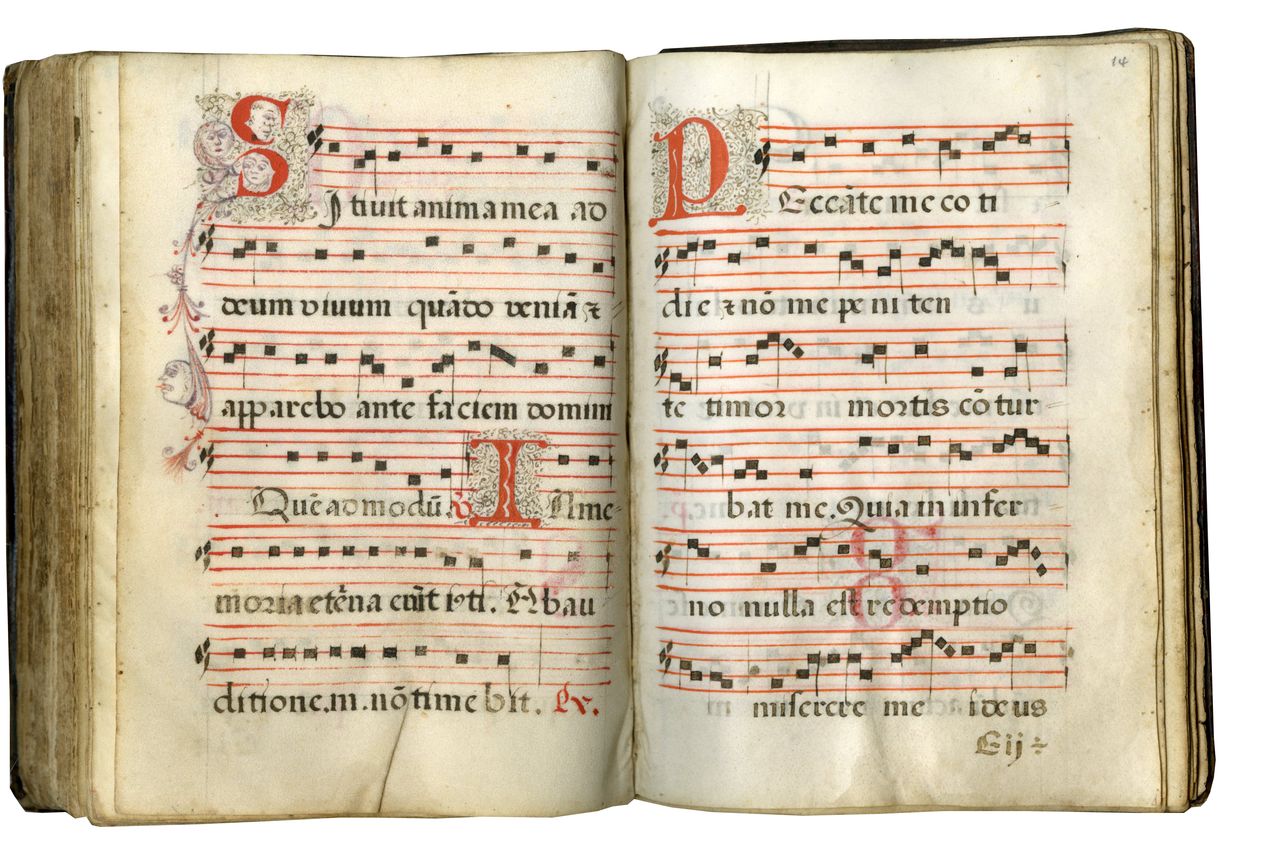 SItiuit anima mea ad
deum viuum quãdo veniã &
apparebo ante faciem domini
Quẽadmodũ. INme-
moria etẽrna erit iusti. Ab au
ditione.m.nõ timebit. Ps.
14
PEccãte me coti
die & nõ me peniten
te timor mortis cõtur
bat me. Quia in infer
no nulla est redemptio
miserere mei deus
Eij